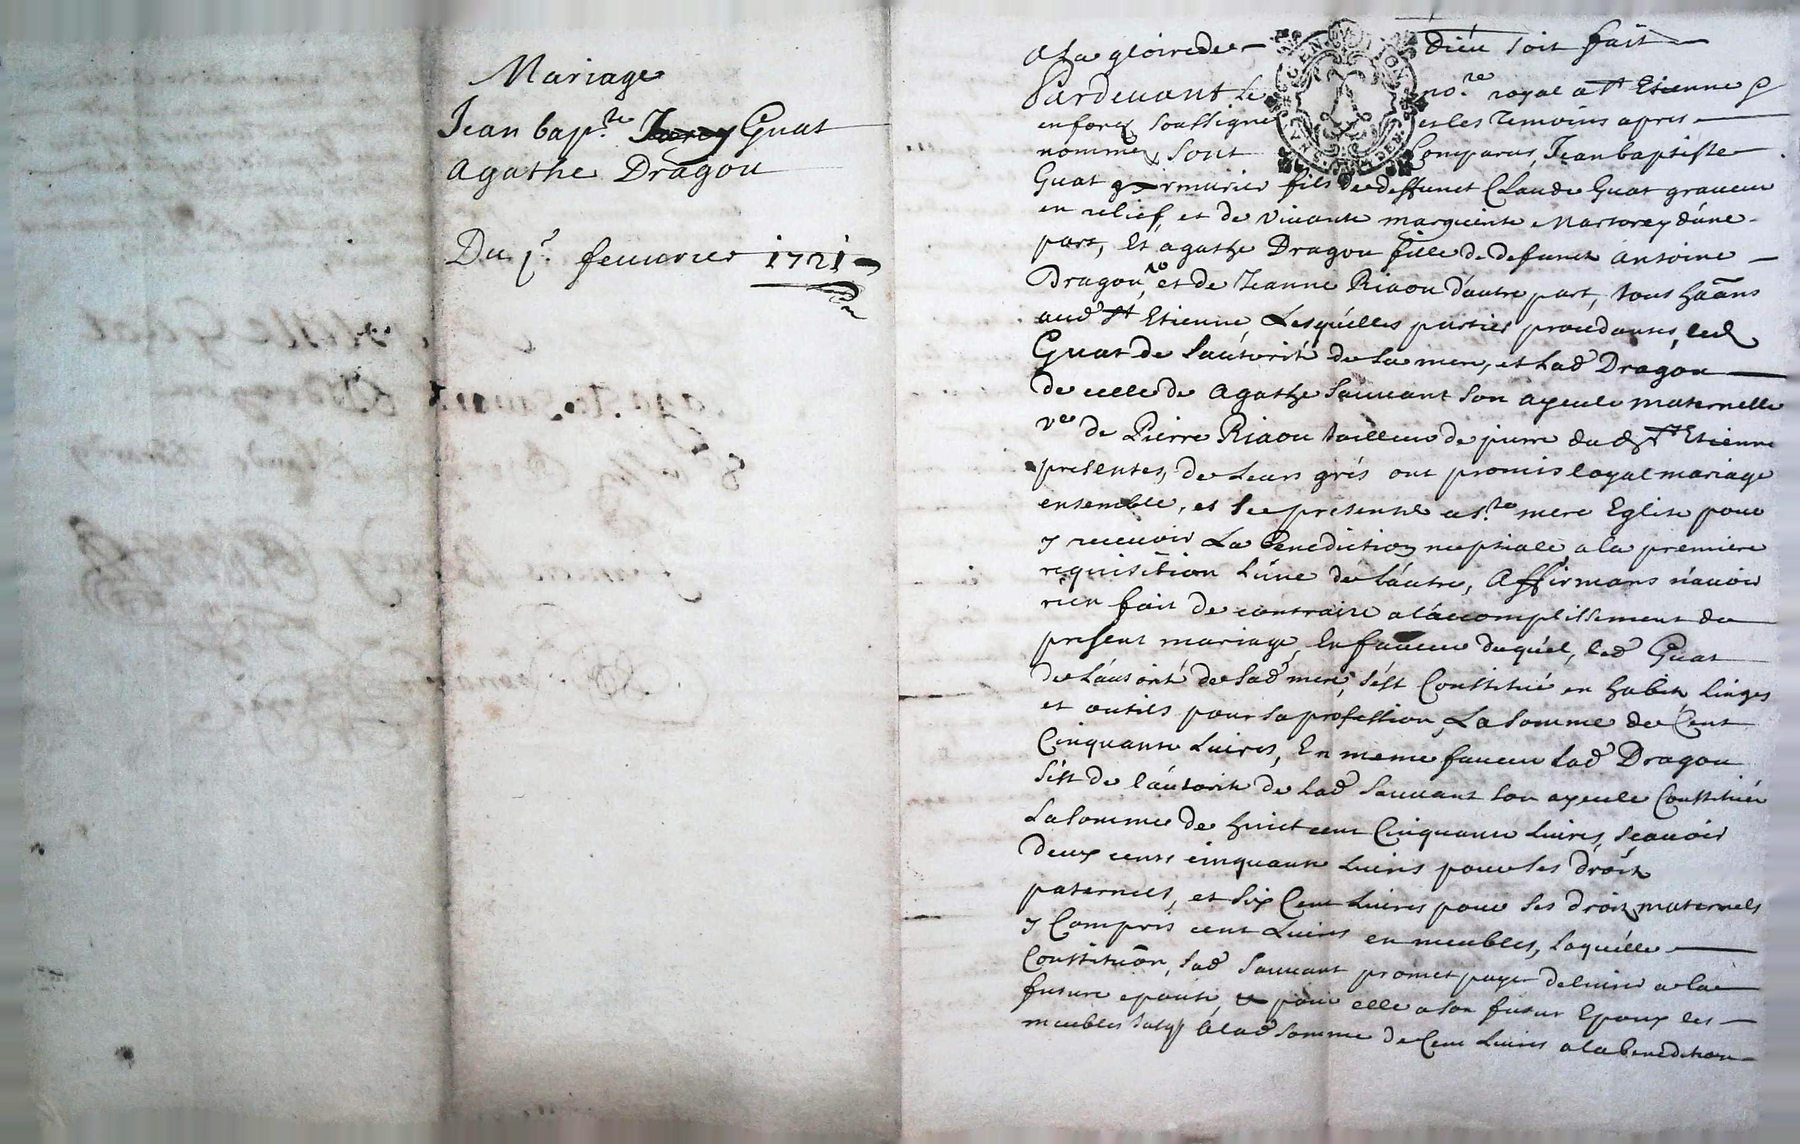 Mariage
Jean bap.te Guat
Agathe Dragou
Du 1.r feuurier 1721
A La gloire de Dieu soit fait
Pardeuant Le no.re royal a St Etienne
en forez soussigné et les temoins apres
nommez sont Comparus, Jean baptiste
Guat armurier fils de deffunct Claude Guat graueur
en relief, et de viuante marguerite Martorey d'une
part, Et agathe Dragou fille de defunct Antoine
Dragou, et de Jeanne Riaou d'autre part, tous hãans
aud St Etienne, Lesquelles parties procedantes, led
Guat de L'autorité de sa mere, et Lad Dragou
de celle de Agathe Sauuant son ayeule maternelle
ve de Pierre Riaou tailleur de pierre dud St Etienne
presentes, de leurs grés ont promis loyal mariage
ensemble, et se presenter a s.te mere Eglise pour
y receuoir La benediction nuptiale a la premiere
requisition L'une de L'autre, Affirmans n'auoir
rien fait de contraire a l'accomplissement du
present mariage, En faueur duquel, led Guat
de L'autorité de sad mere, s'est Constitué en habits Linges
et outils pour sa profession, La somme de Cent
Cinquante Liures, En meme faueur Lad Dragou
s'est de l'autorité de Lad Sauuant son ayeule Constituée
La somme de huict cent Cinquante Liures, scauoir
deux cents cinquante Liures pour ses droits
paternels, et six Cent Liures pour ses droits maternels
y Compris cent Liures en meubles, laquelle
Constitution, lad Sauuant promet payer deliurer a la
future epouse, et pour elle a son futur Epoux les
meubles lad somme de Cent Liures a la benediction